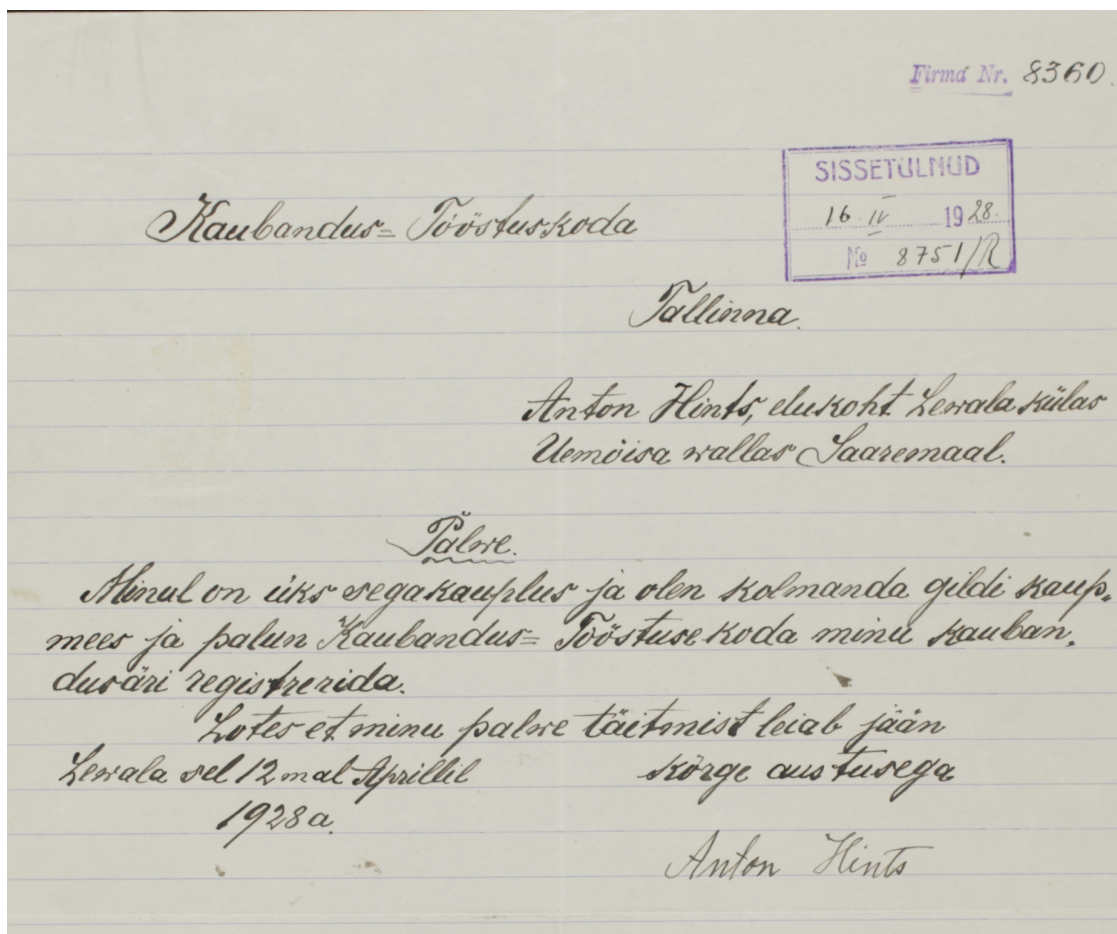 Firma Nr. 8360.
SISSETULNUD
16. IV 1928.
No 8751/R
Kaubandus= Tööstuskoda
Tallinna.
Anton Hints, elukoht Lewala külas
Uemõisa wallas Saaremaal.
Palwe.
Minul on üks segakauplus ja olen kolmanda gildi kaup,
mees ja palun Kaubandus= Tööstuse koda minu kauban,
dusäri registrerida.
Lotes et minu palwe täitmist leiab jään
Lewala sel 12mal Aprillil kõrge austusega
1928a.
Anton Hints